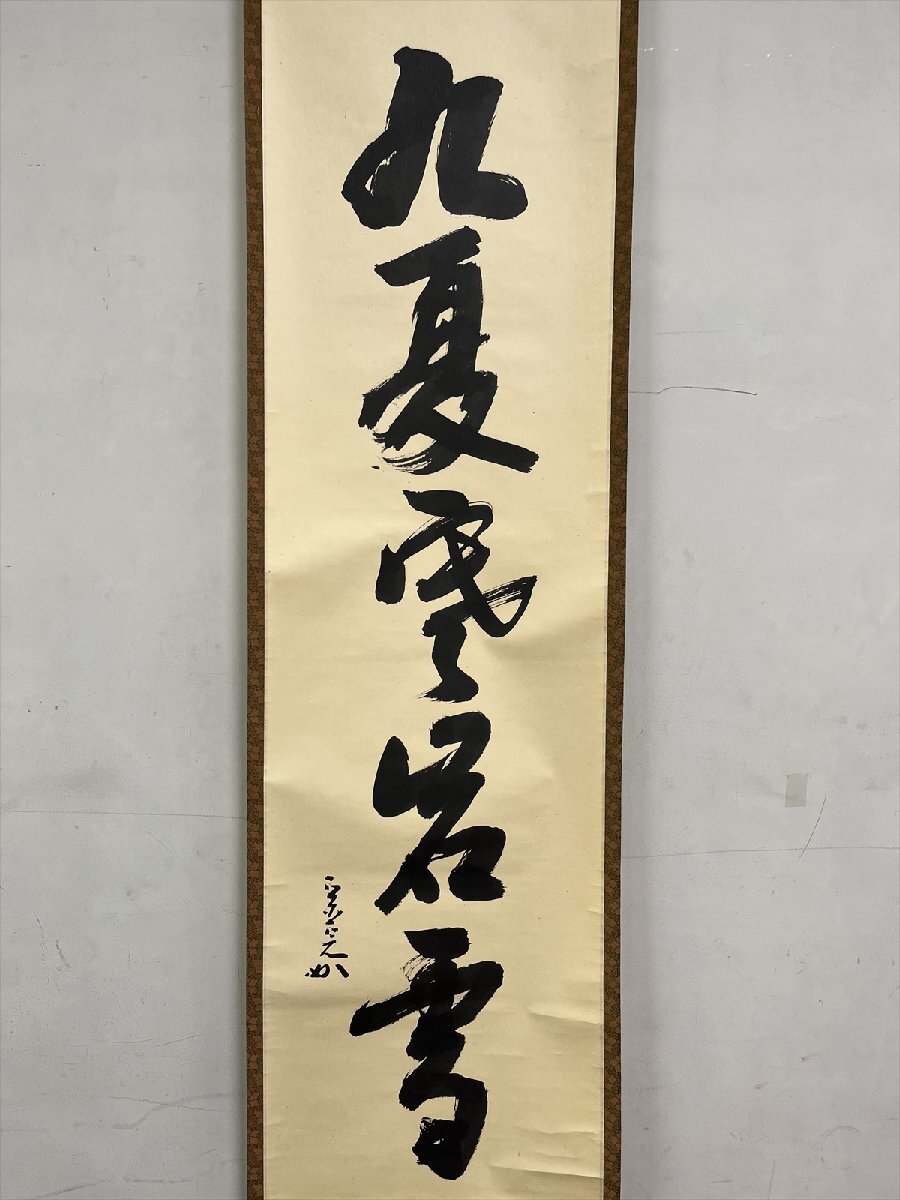 九夏寒岩雪